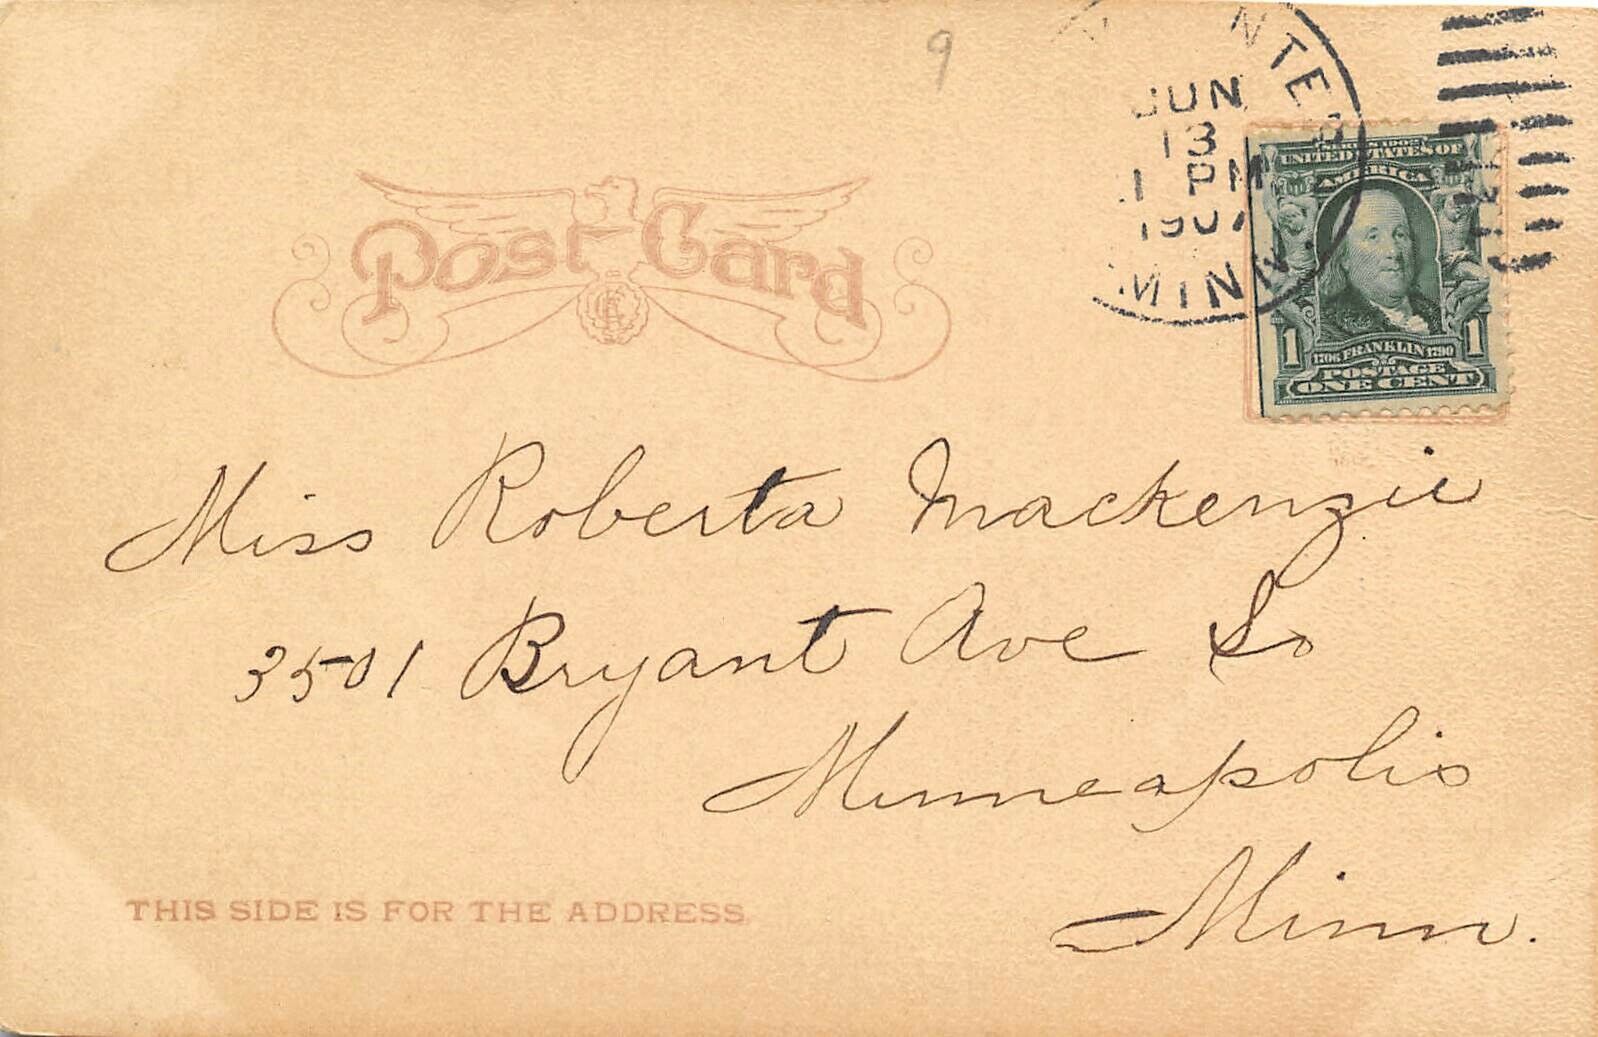 9
JUN
13
1 PM
1907
MINN.
Post Card
UNITED STATES OF
AMERICA
1 1
1706 FRANKLIN 1790
POSTAGE
ONE CENT
Miss Roberta Mackenzie
3501 Bryant Ave So
Minneapolis
Minn.
THIS SIDE IS FOR THE ADDRESS